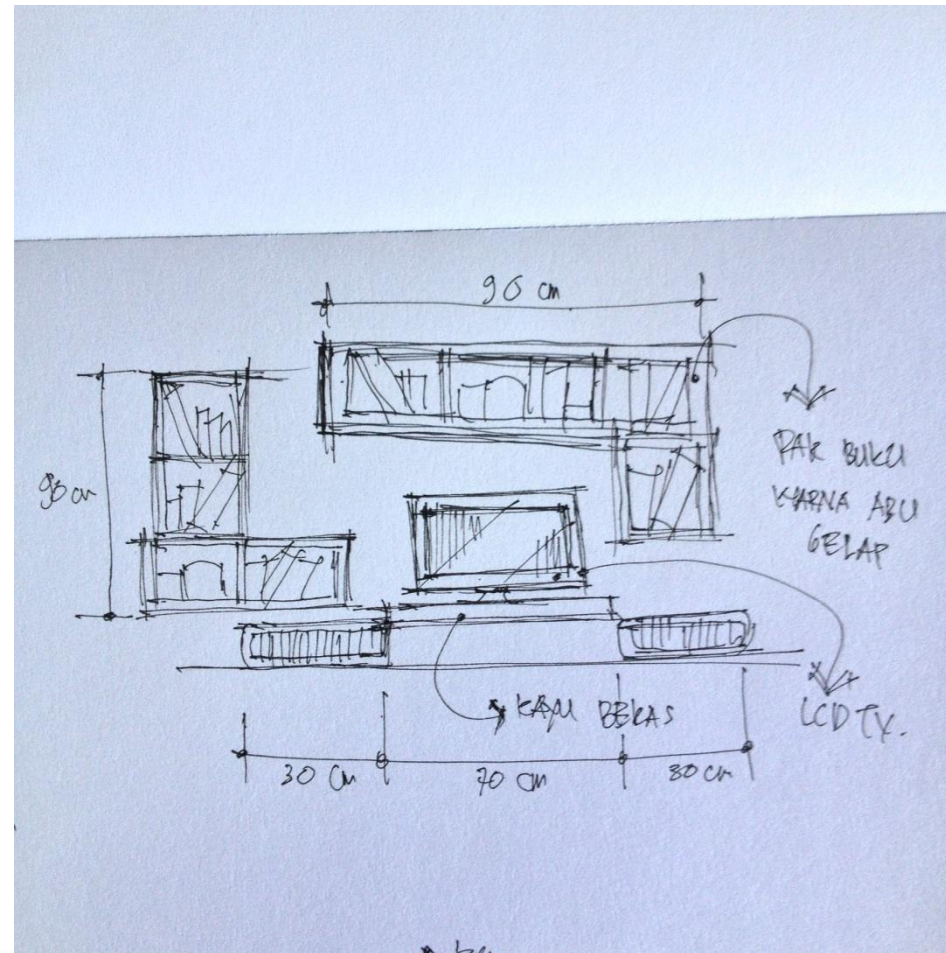 90 cm
90 cm
RAK BUKU
WARNA ABU
GELAP
KAYU BEKAS
LCD TV.
30 cm
70 cm
30 cm